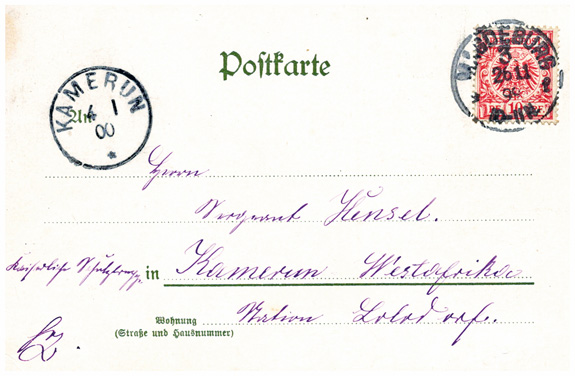 Postkarte
MAGDEBURG
3
26 11
99
10-11V.
KAMERUN
4 1
00
*
An
Herrn
Sergeant Hensel.
Kaiserliche Schutztruppe in Kamerun Westafrika
Wohnung
(Straße und Hausnummer)
Station Lolodorf.